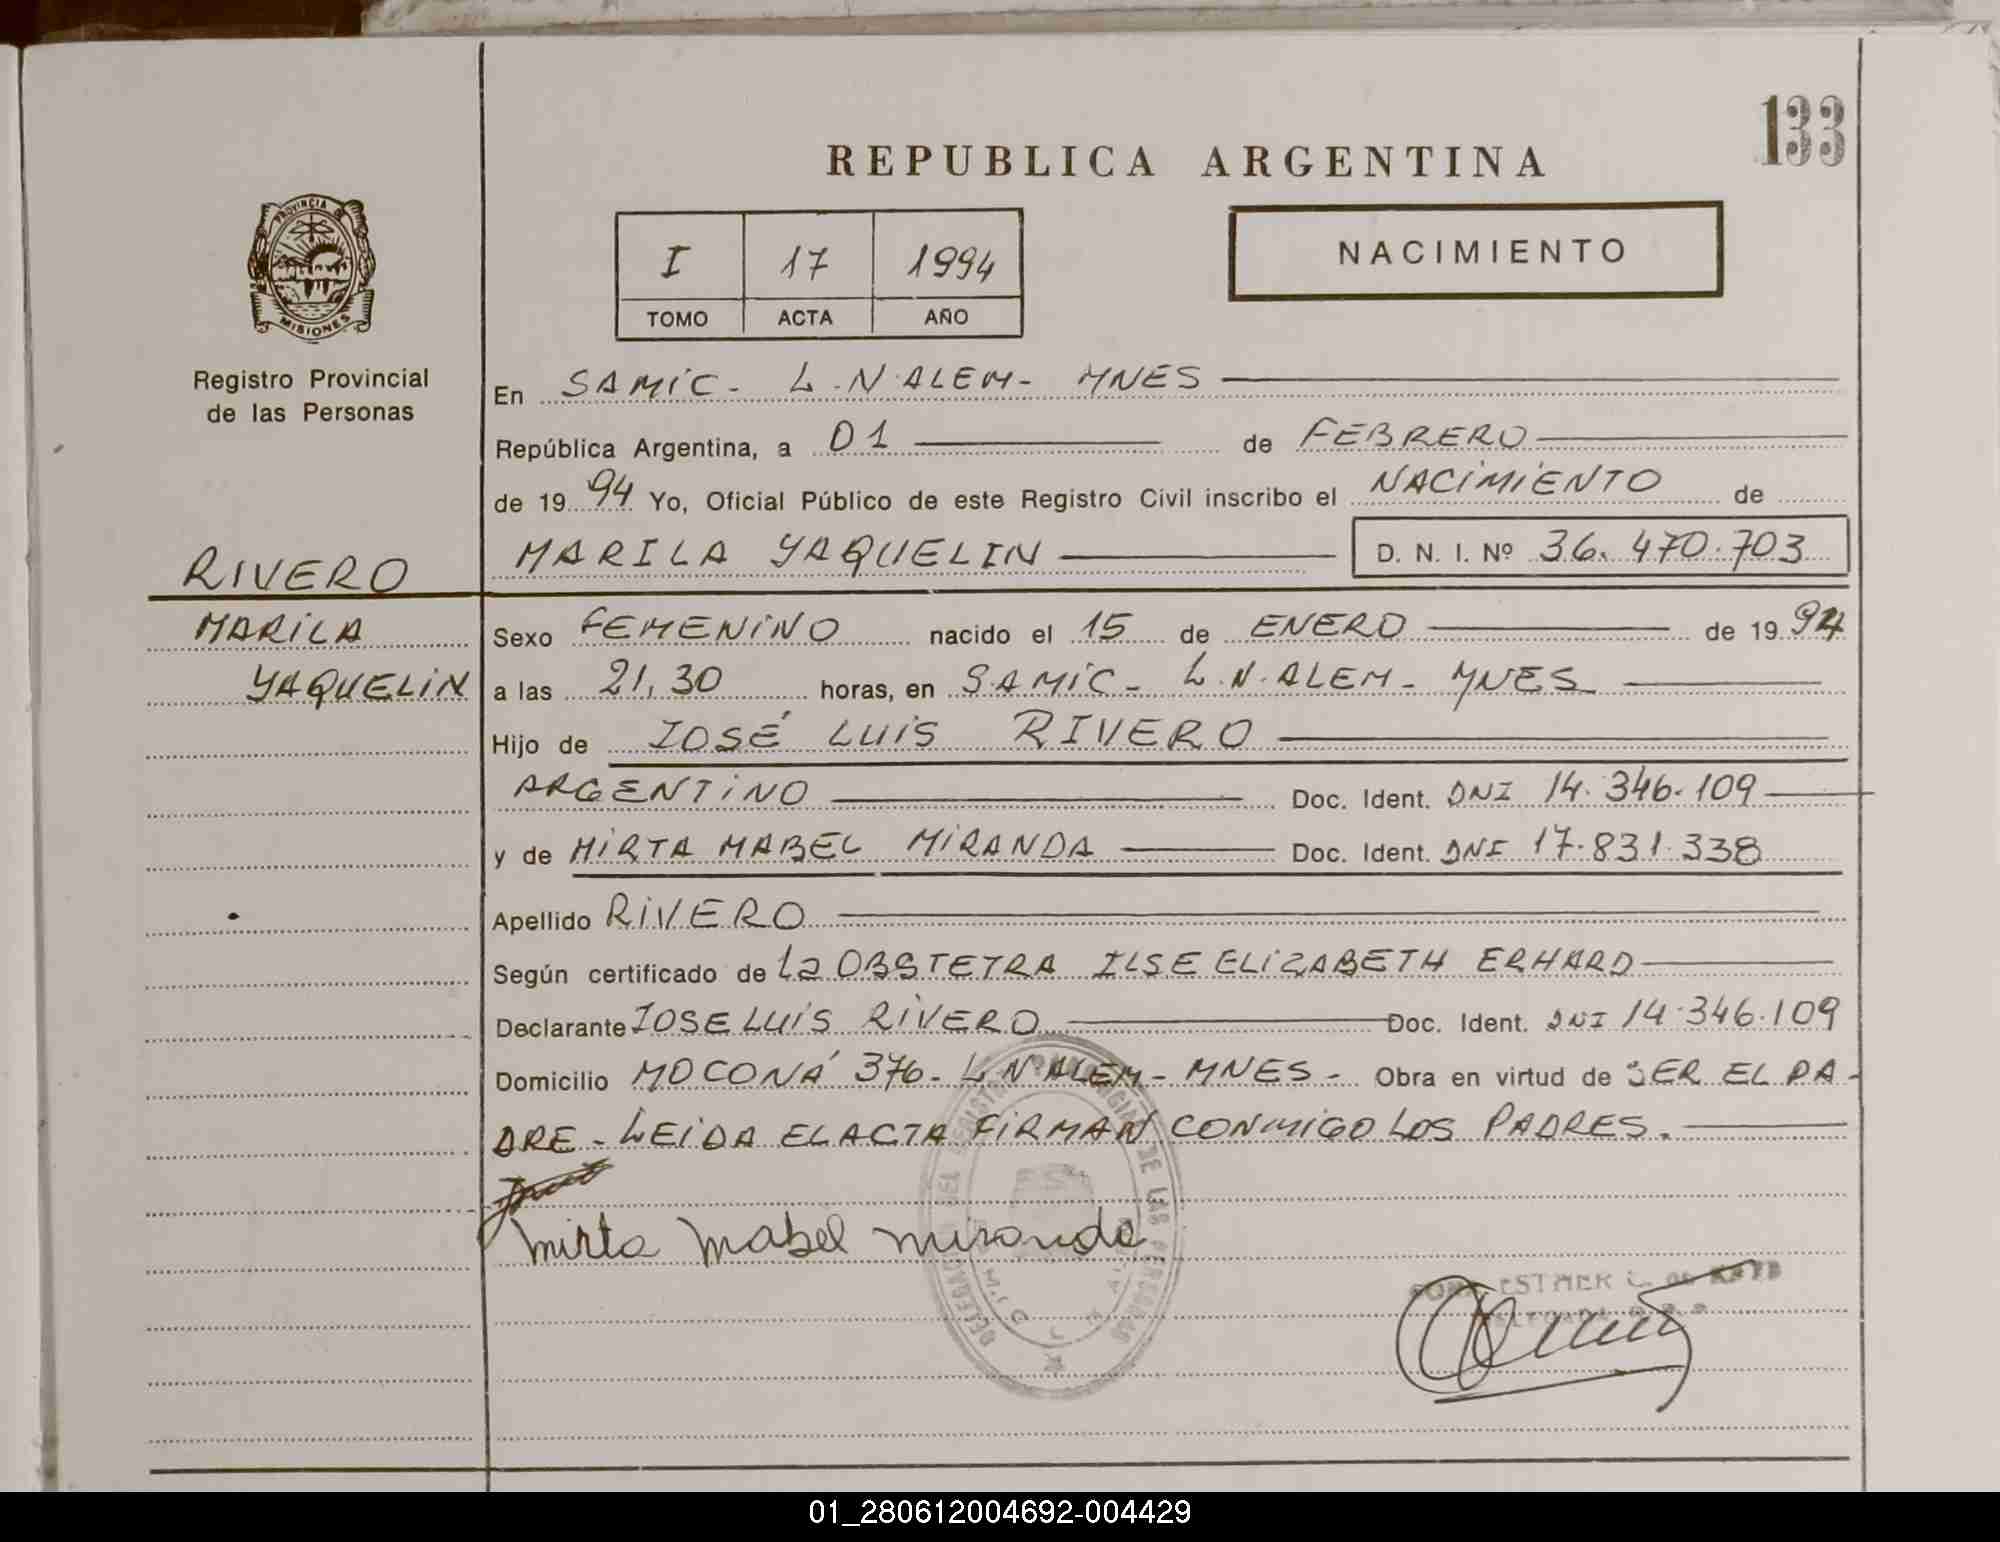 133
REPUBLICA ARGENTINA
PROVINCIA DE
MISIONES
I 17 1994
TOMO ACTA AÑO
NACIMIENTO
Registro Provincial
de las Personas
En SAMIC - L.N. ALEM - MNES
República Argentina, a 01 de FEBRERO
de 1994 Yo, Oficial Público de este Registro Civil inscribo el NACIMIENTO de
MARILA YAQUELIN D. N. I. Nº 36.470.703
RIVERO
MARILA
YAQUELIN
Sexo FEMENINO nacido el 15 de ENERO de 1994
a las 21,30 horas, en SAMIC - L.N. ALEM - MNES
Hijo de JOSÉ LUIS RIVERO
ARGENTINO Doc. Ident. DNI 14.346.109
y de MIRTA MABEL MIRANDA Doc. Ident. DNI 17.831.338
Apellido RIVERO
Según certificado de La OBSTETRA ILSE ELIZABETH ERHARD
Declarante JOSE LUIS RIVERO Doc. Ident. DNI 14.346.109
Domicilio MOCONÁ 376 - L N ALEM - MNES - Obra en virtud de SER EL PA-
DRE - LEIDA EL ACTA FIRMAN CONMIGO LOS PADRES.
Mirta Mabel Miranda
ESTHER
DE LAS PERSONAS
01_280612004692-004429